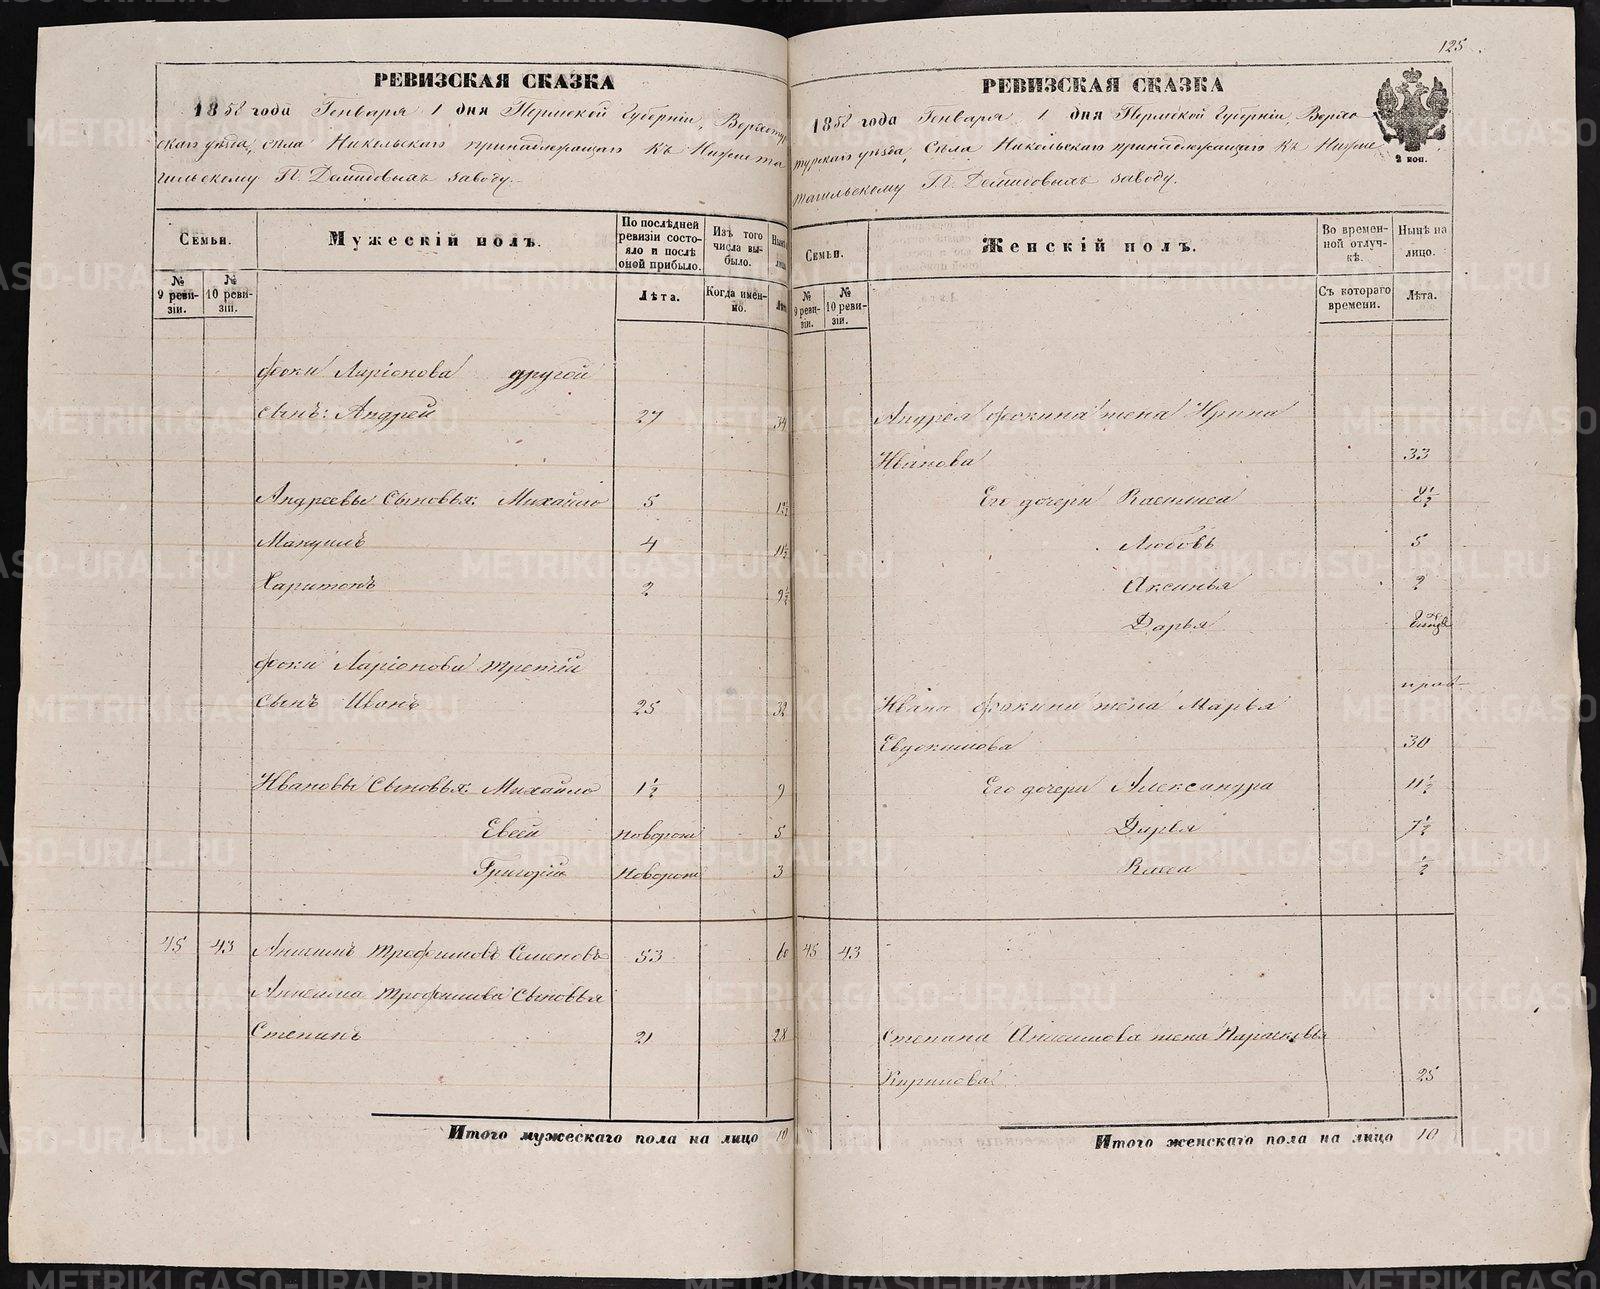 125
РЕВИЗСКАЯ СКАЗКА
1858 года Генваря 1 дня Пермской Губерніи, Верхоту
скаго уѣзда, села Никольскаго принадлежащаго къ Нижнета
гильскому Г.г. Демидовыхъ заводу.
Семьи.
Мужескій полъ.
По послѣдней ревизіи состояло и послѣ оной прибыло.
Изъ того числа выбыло.
№ 9 ревизіи.
№ 10 ревизіи.
Лѣта.
Когда именно.
Фоки Ларіонова другой
сынъ: Андрей 27 34
Андреевы Сыновья: Михайло 5 12½
Мануилъ 4 11½
Харитонъ 2 9½
Фоки Ларіонова третій
сынъ Иванъ 25 32
Ивановы Сыновья: Михайло 1½ 9
Евсей новорож 5
Григорій Новорож 3
45 43 Анисимъ Трофимовъ Семеновъ 53 60
Анисима Трофимова Сыновья
Степанъ 21 28
Итого мужескаго пола на лицо 10
РЕВИЗСКАЯ СКАЗКА
1858 года Генваря 1 дня Пермской Губерніи, Верхо
турскаго уѣзда, Села Никольскаго принадлежащаго къ Нижне
тагильскому Г.г. Демидовыхъ заводу.
2 коп.
Семьи.
Женскій полъ.
Во временной отлучкѣ.
Нынѣ на лицо.
№ 9 ревизіи.
№ 10 ревизіи.
Съ котораго времени.
Лѣта.
Андрея Фокина жена Ирина
Иванова 33
Его дочери Василиса 8½
Любовь 5
Аксинья 2
Дарья
Ивана Фокина жена Марья
Евдокимова 30
Его дочери Александра 11½
Дарья 7½
Васса ½
45 43
Степана Анисимова жена Парасковья
Карпова 25
Итого женскаго пола на лицо 10
METRIKI.GASO-URAL.RU